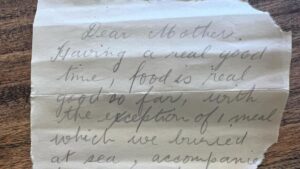 Dear Mother.
Having a real good
time, food is real
good so far, with
the exception of 1 meal
which we buried
at sea, accompanie